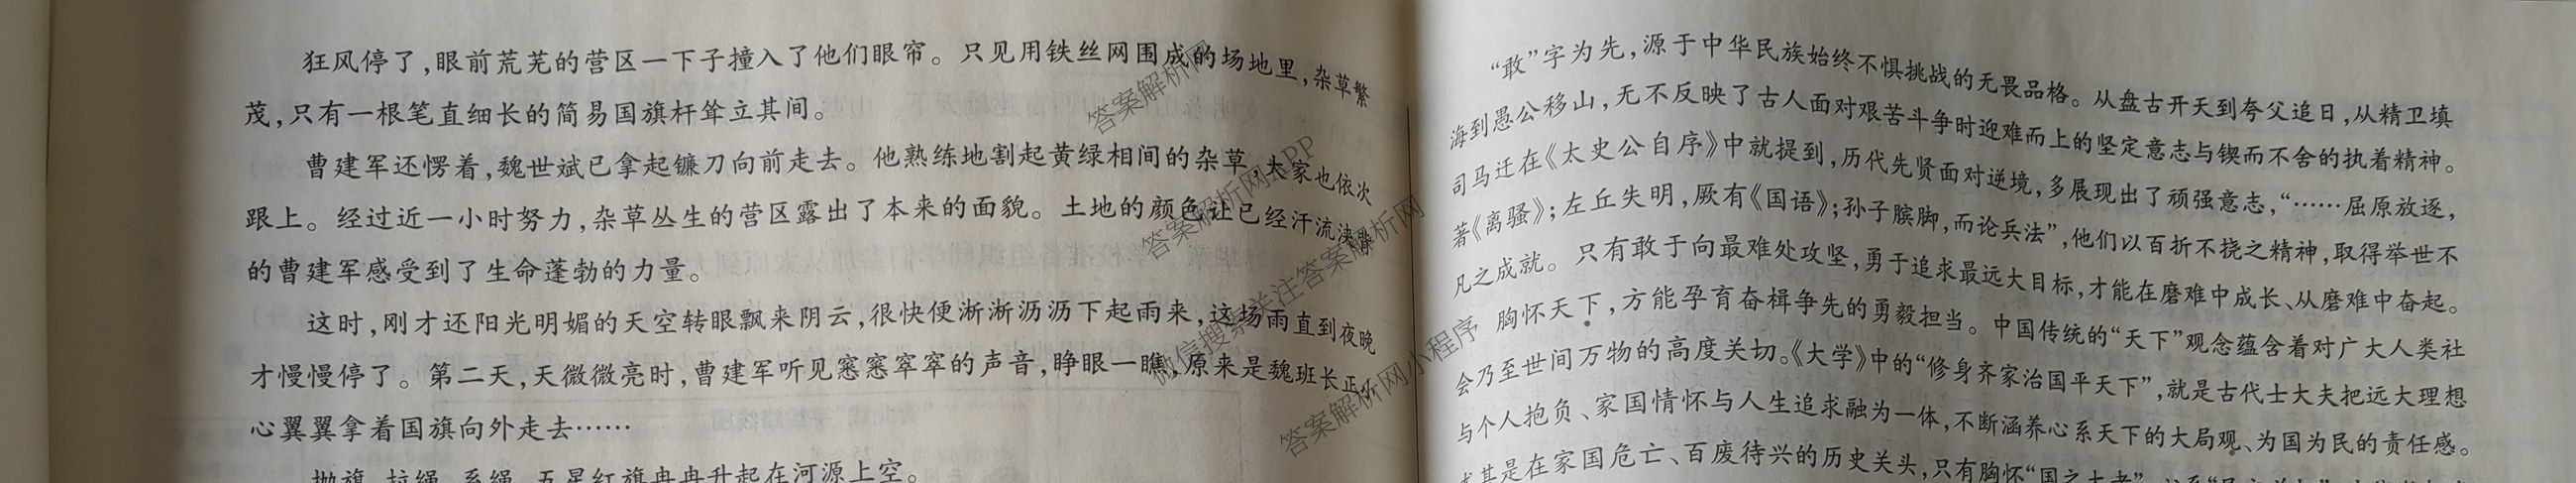 狂风停了,眼前荒芜的营区一下子撞入了他们眼帘。只见用铁丝网围成的场地里,杂草繁
茂,只有一根笔直细长的简易国旗杆耸立其间。
曹建军还愣着,魏世斌已拿起镰刀向前走去。他熟练地割起黄绿相间的杂草,大家也依次
跟上。经过近一小时努力,杂草丛生的营区露出了本来的面貌。土地的颜色让已经汗流浃背
的曹建军感受到了生命蓬勃的力量。
这时,刚才还阳光明媚的天空转眼飘来阴云,很快便淅淅沥沥下起雨来,这场雨直到夜晚
才慢慢停了。第二天,天微微亮时,曹建军听见窸窸窣窣的声音,睁眼一瞧,原来是魏班长正小
心翼翼拿着国旗向外走去……
抛旗、拉绳、系绳,五星红旗冉冉升起在河源上空。
“敢”字为先,源于中华民族始终不惧挑战的无畏品格。从盘古开天到夸父追日,从精卫填
海到愚公移山,无不反映了古人面对艰苦斗争时迎难而上的坚定意志与锲而不舍的执着精神。
司马迁在《太史公自序》中就提到,历代先贤面对逆境,多展现出了顽强意志,“……屈原放逐,
著《离骚》;左丘失明,厥有《国语》;孙子膑脚,而论兵法”,他们以百折不挠之精神,取得举世不
凡之成就。只有敢于向最难处攻坚,勇于追求最远大目标,才能在磨难中成长、从磨难中奋起。
胸怀天下,方能孕育奋楫争先的勇毅担当。中国传统的“天下”观念蕴含着对广大人类社
会乃至世间万物的高度关切。《大学》中的“修身齐家治国平天下”,就是古代士大夫把远大理想
与个人抱负、家国情怀与人生追求融为一体,不断涵养心系天下的大局观、为国为民的责任感。
尤其是在家国危亡、百废待兴的历史关头,只有胸怀“国之大者”
答案解析网
答案解析网APP
微信搜索关注答案解析网
答案解析网小程序